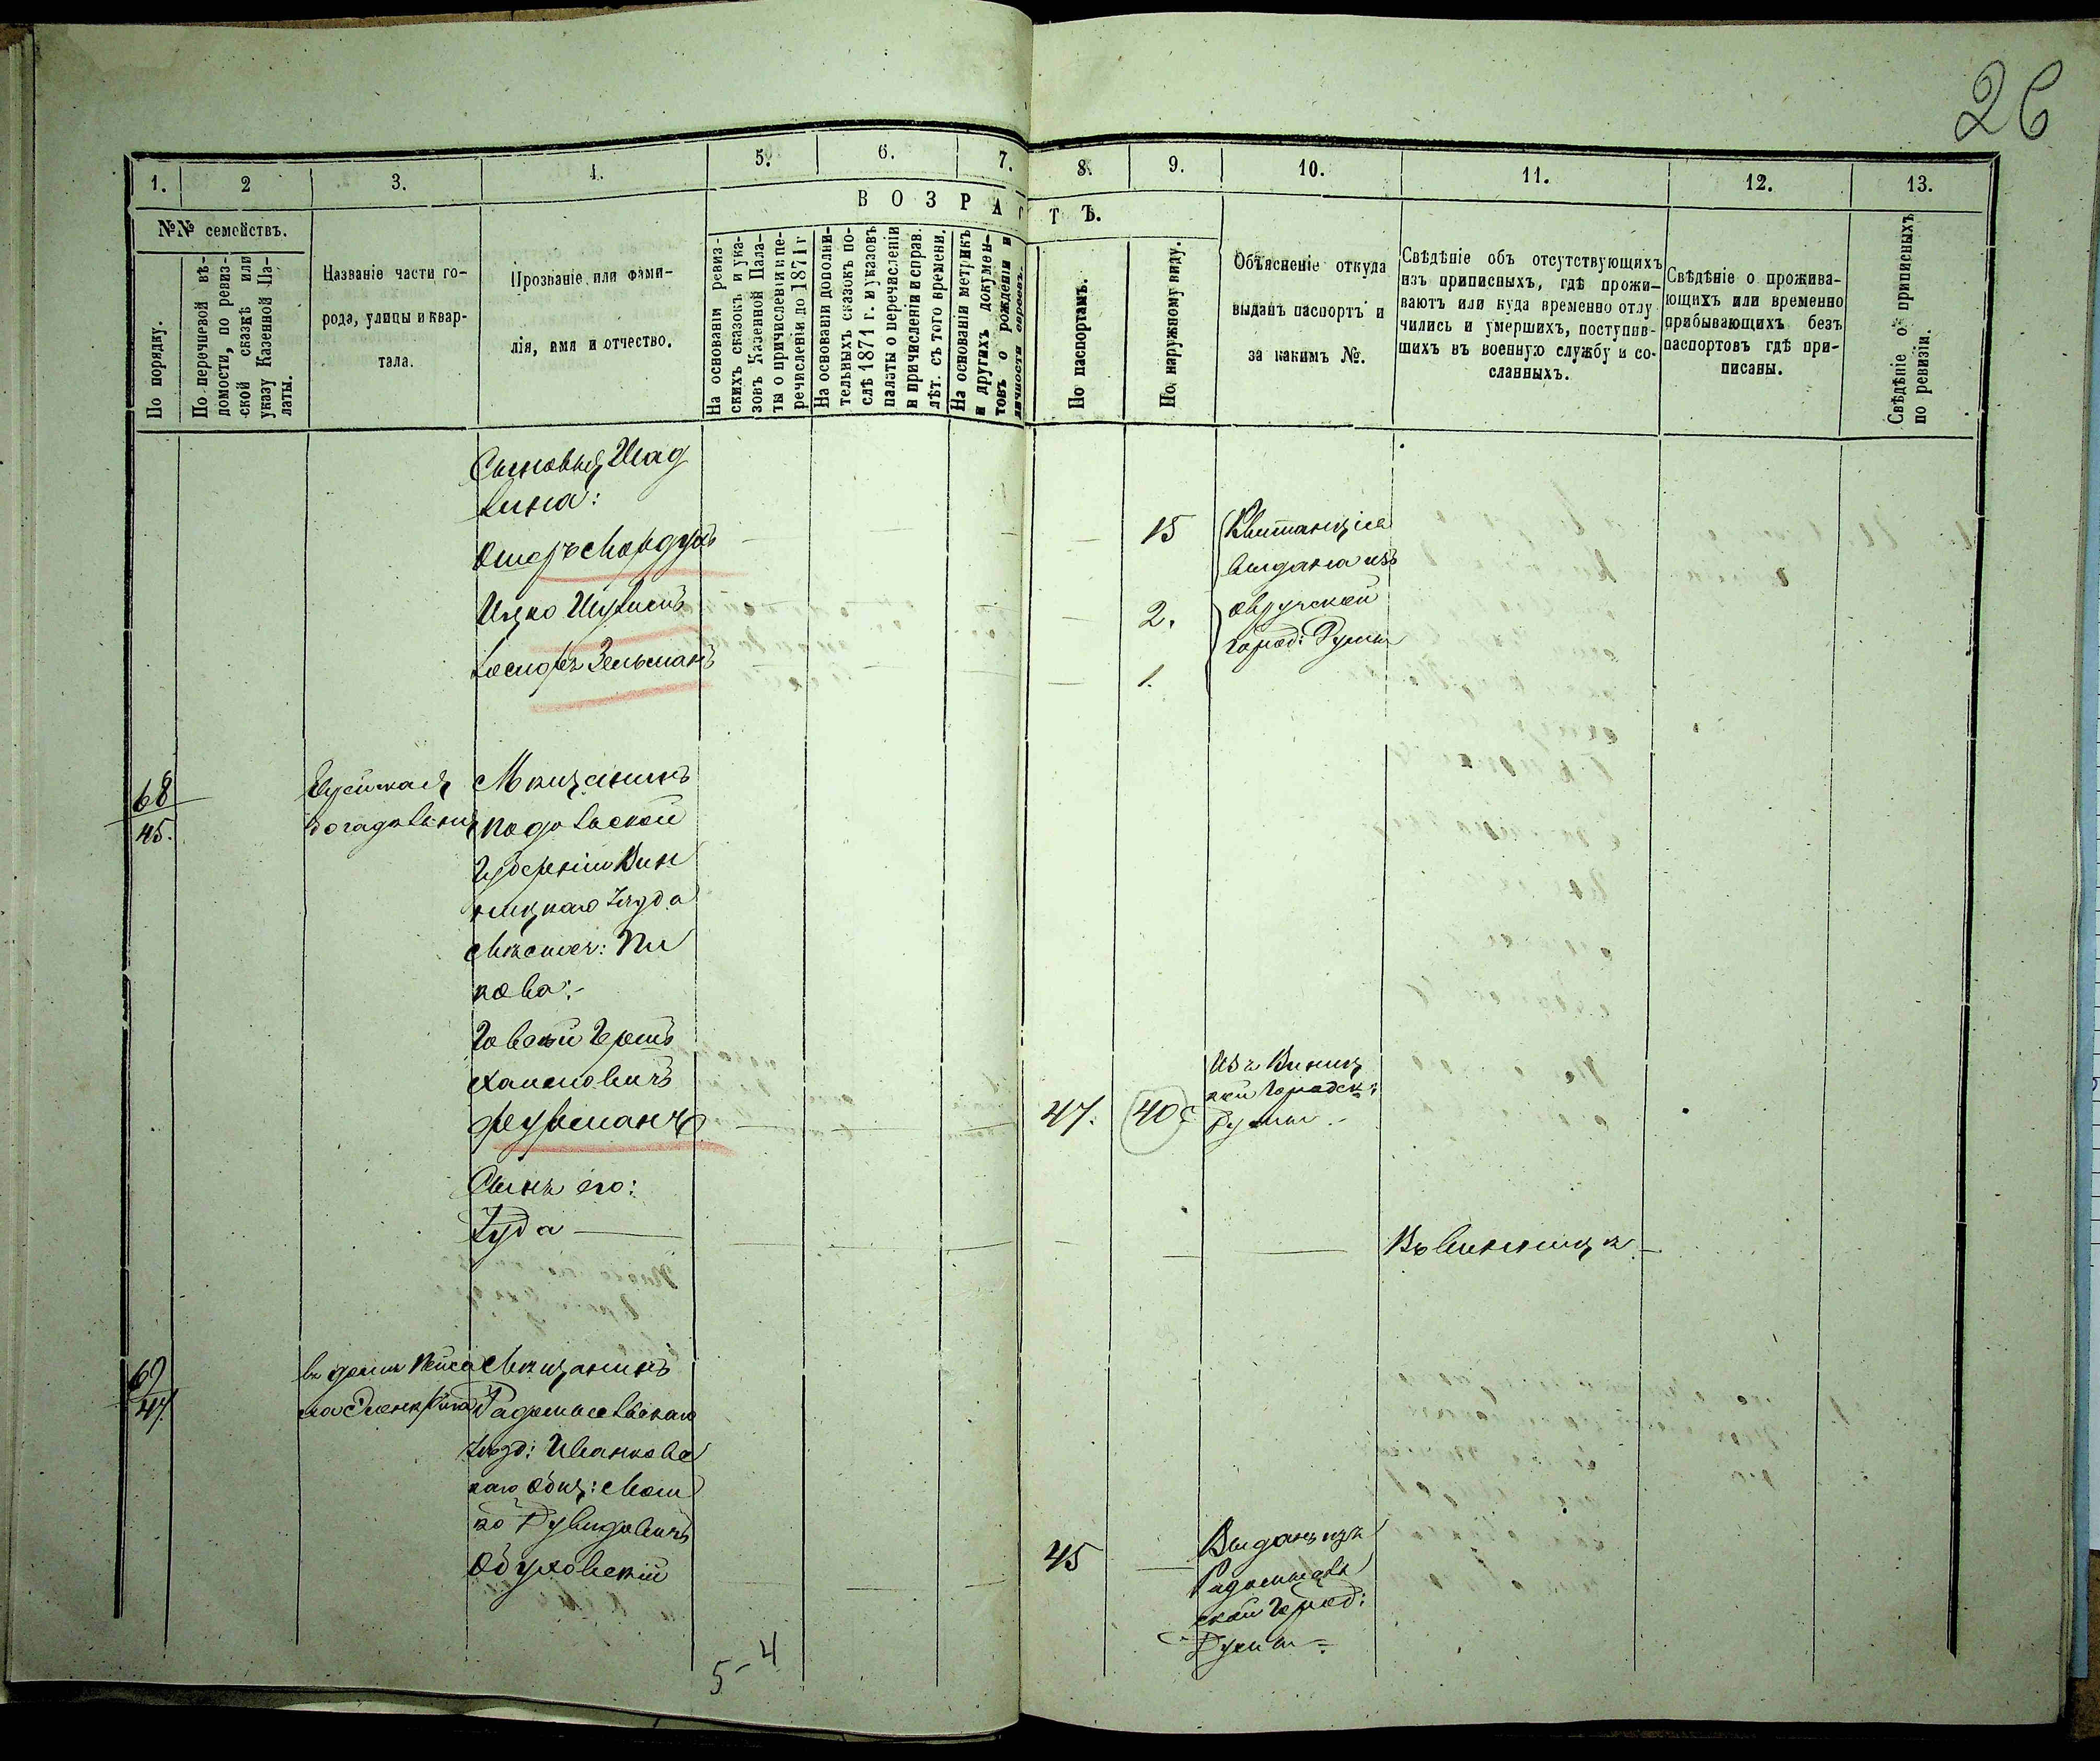 26
1. 2 3. 4. 5. 6. 7. 8. 9. 10. 11. 12. 13.
В О З Р А С Т Ъ.
№№ семействъ.
По порядку.
По перечневой вѣ-
домости, по ревиз-
ской сказкѣ или
указу Казенной Па-
латы.
Названіе части го-
рода, улицы и квар-
тала.
Прозваніе или фами-
лія, имя и отчество.
На основаніи ревиз-
скихъ сказокъ и ука-
зовъ Казенной Пала-
ты о причисленіи и пе-
речисленіи до 1871 г
На основаніи дополни-
тельныхъ сказокъ по-
слѣ 1871 г. и указовъ
палаты о перечисленіи
и причисленіи и справ.
лѣт. съ того времени.
На основаніи метрикъ
и другихъ докумен-
товъ о рожденіи и
По паспортамъ.
По наружному виду.
Объясненіе откуда
выданъ паспортъ и
за какимъ №.
Свѣдѣніе объ отсутствующихъ
изъ приписныхъ, гдѣ прожи-
ваютъ или куда временно отлу
чились и умершихъ, поступив-
шихъ въ военную службу и со-
сланныхъ.
Свѣдѣніе о прожива-
ющихъ или временно
прибывающихъ безъ
паспортовъ гдѣ при-
писаны.
Свѣдѣніе о приписныхъ
по ревизіи.
Сыновья
Ошеръ Мордухъ
15
Квитанція
выдана изъ
Ицко
2.
Овручской
город: Думы
Зельманъ
1.
68
45.
Мѣщанинъ
подольской
губерніи Вин
ницкаго уезда
Мѣстеч: Пи
кова:-
Гершъ
Хаимовичъ
Фурманъ
47. 40
Изъ Виниц
кой Городск:
Думы -
Сынъ его:
Іуда
Въ Винницѣ
69
47.
въ домѣ
Мѣщанинъ
Радомысльскаго
уезд: Иванковс
каго общ: Мош
ко Дувидовичъ
Обуховскій
45
Выданъ изъ
Радомысль
ской Город:
Думы
5-4